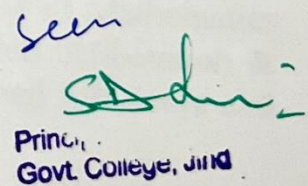 seen
Princi,
Govt. College, Jind